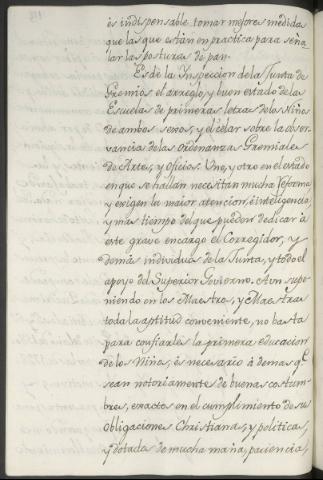 es indispensable tomar mejores medidas
que las que están en practica para seña
lar las posturas de pan.
Es de la Inspeccion de la Junta de
Gremios el arreglo, y buen estado de las
Escuelas de primeras letras de los Niños
de ambos sexos, y el célar sobre la obser
vancia de las Ordenanzas Gremiales
de Artes, y Oficios. Uno, y otro en el estado
en que se hallan necesitan mucha reforma
y exigen la maior atencion, é inteligencia,
y mas tiempo del que pueden dedicar à
este grave encargo el Corregidor, y
demás individuos de la Junta, y todo el
apoyo del Superior Govierno. Aun supo
niendo en los Maestros, y Maestras
toda la aptitud conveniente, no basta
para confiarles la primera educacion
de los Niños; és necesario à demas qe.
sean notoriamente de buenas costum
bres, exactos en el cumplimiento de sus
obligaciones Christianas, y politicas,
y dotados de mucha maña, paciencia,